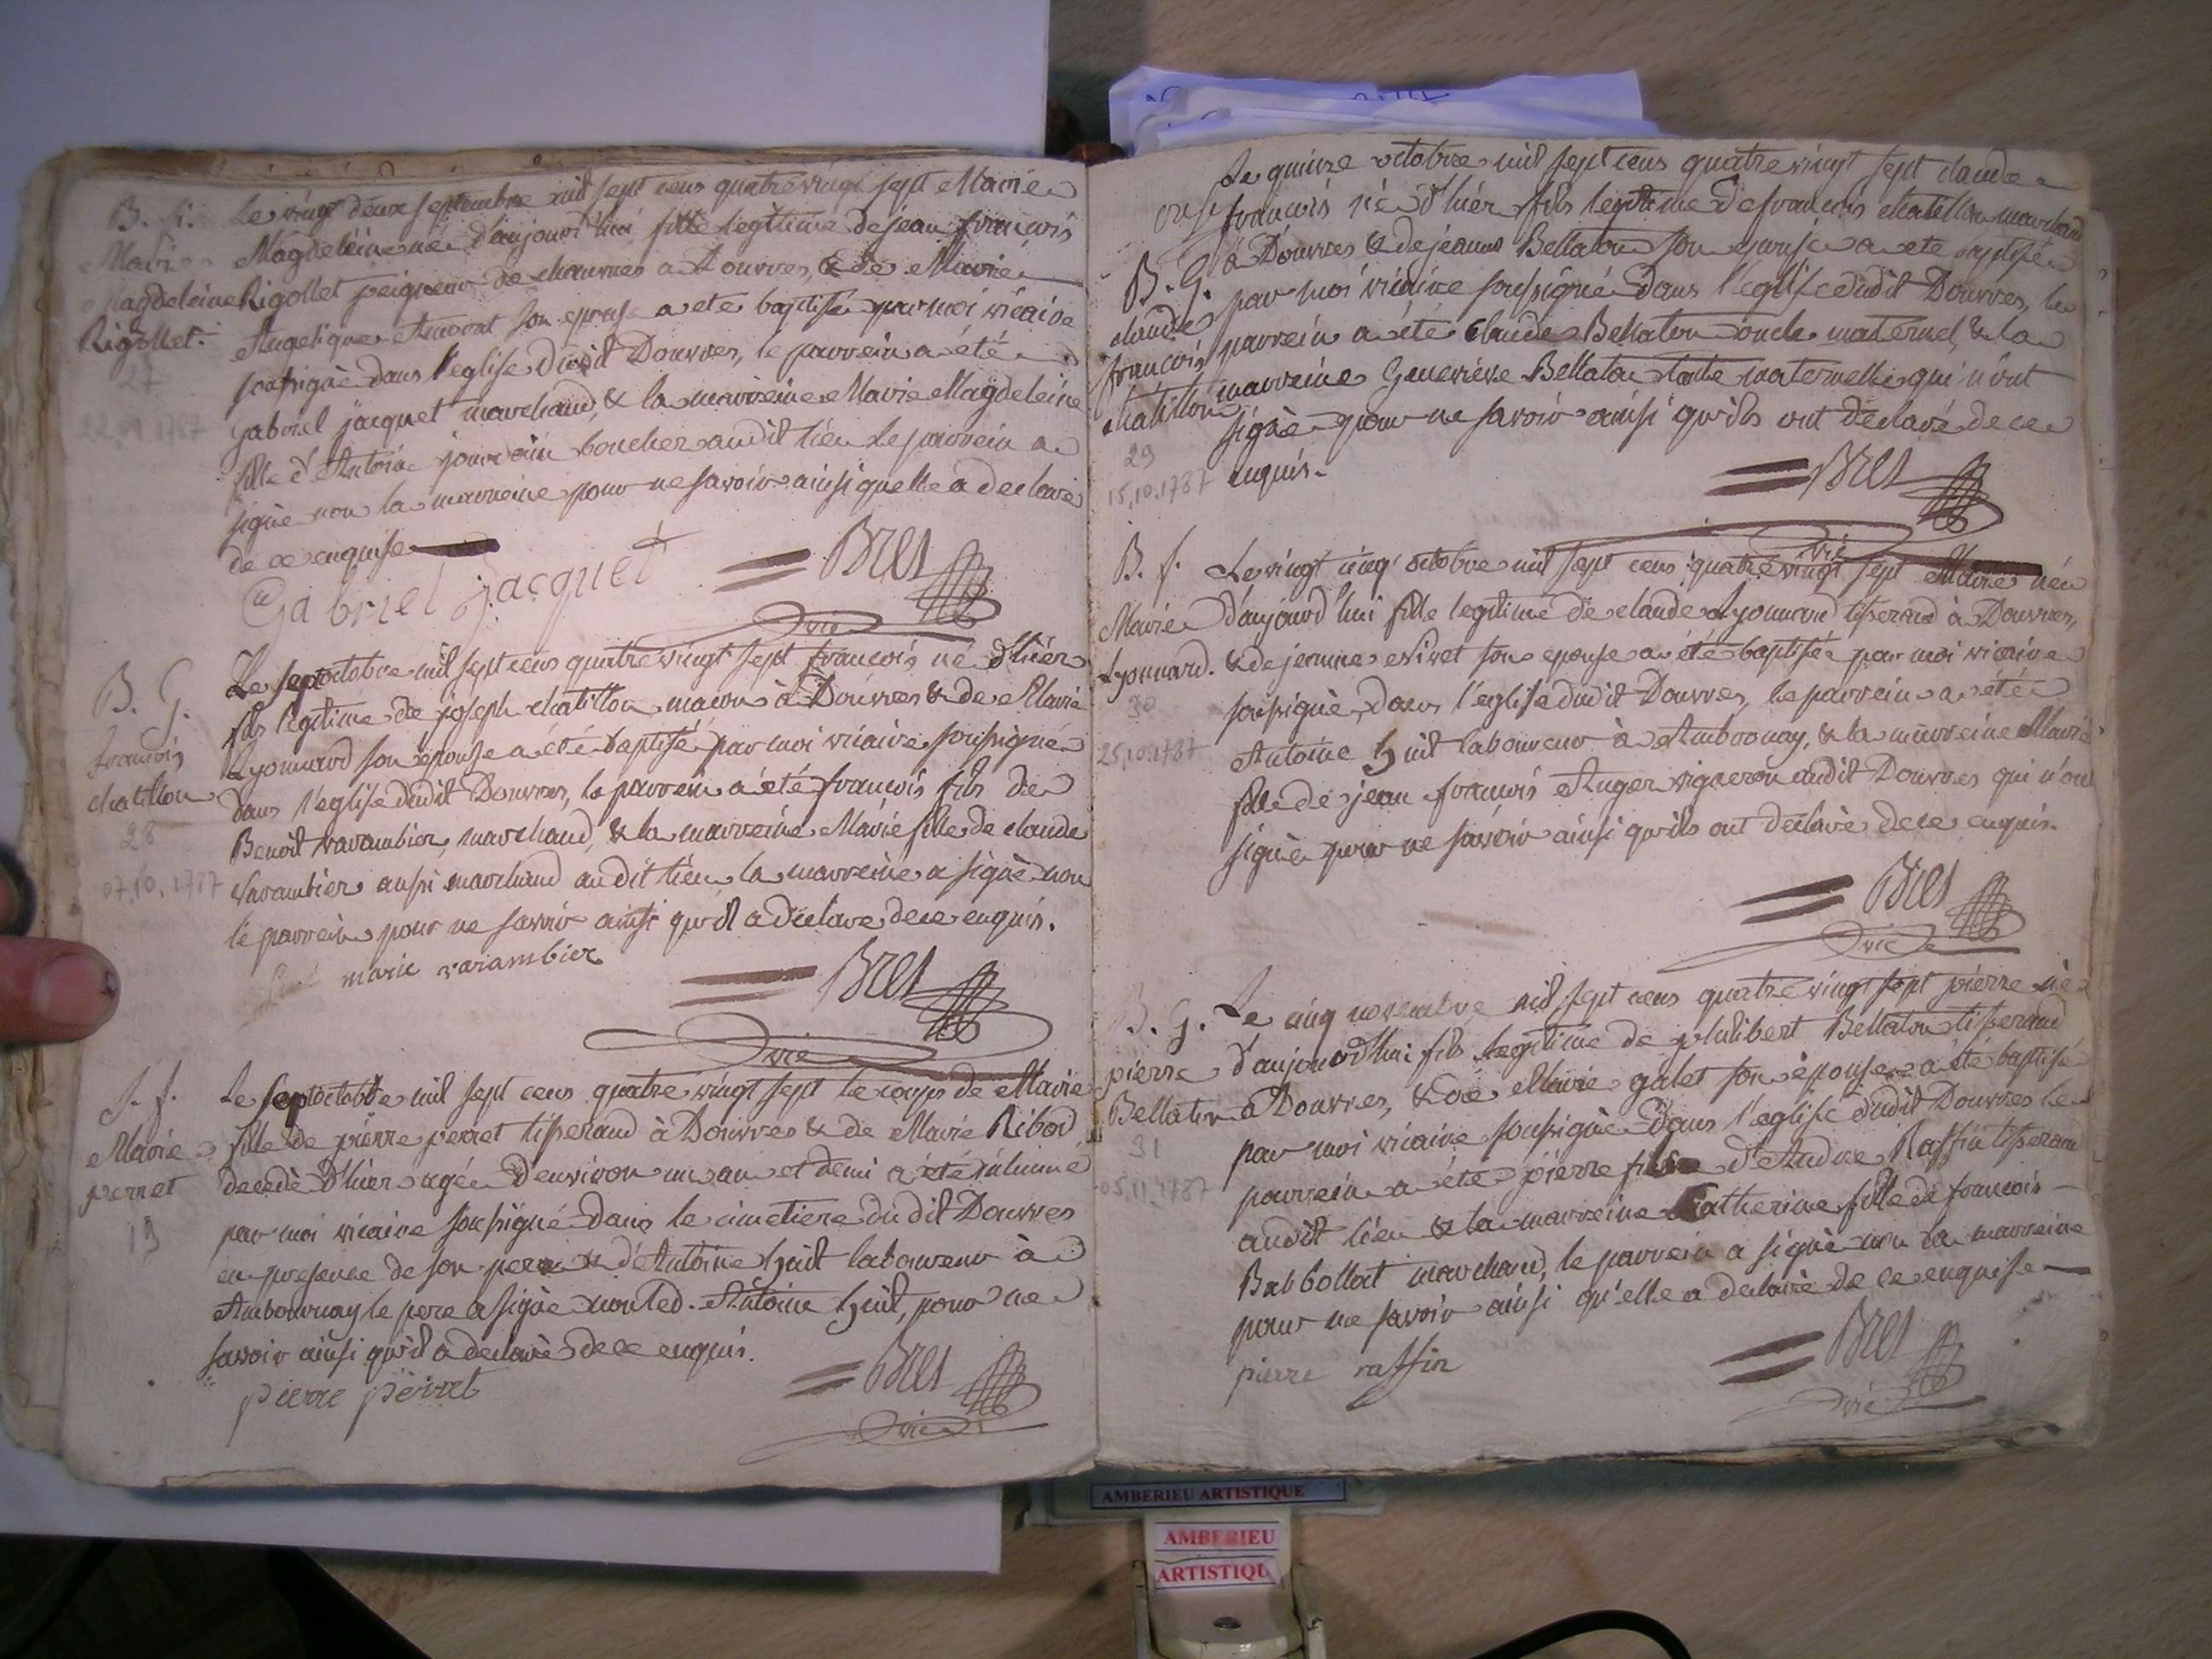 B. f.
Marie
Magdeleine
Rigollet.
27
22,09.1787
Le vingt deux septembre mil sept cens quatre vingt sept Marie
Magdeleine née d'aujourd'hui fille legitime de jean françois
Rigollet peigneur de chanvres a Douvres, & de Marie
Angelique son epouse a eté baptisée par moi vicaire
soussigné dans l'eglise dudit Douvres, le parrein a été
gabriel jacquet marchand, & la marreine Marie Magdeleine
fille d'Antoine boucher audit lieu le parrein a
signé non la marreine pour ne savoir ainsi quelle a declaré
de ce enquise
Gabriel jacquet
= Bret
vic
B. G.
francois
chatillon
28
07.10.1787
Le sept octobre mil sept cens quatre vingt sept françois né d'hier
fils legitime de joseph chatillon macon à Douvres & de Marie
Lyonnard son epouse a été baptisé par moi vicaire soussigné
dans l'eglise dudit Douvres, le parrein a été françois fils de
Benoit varambier, marchand, & la marreine Marie fille de claude
varambier aussi marchand audit lieu la marreine a signé non
le parrein pour ne savoir ainsi qu'il a déclaré de ce enquis.
marie varambier
= Bret
vic
S. f.
Marie
perret
13
Le sept octobre mil sept cens quatre vingt sept le corps de Marie
fille de pierre perret tisserand à Douvres & de Marie Ribod
decedé d'hier agée d'environ un an et demi a été inhumé
par moi vicaire soussigné dans le cimetiere du dit Douvres
en presence de son pere & d'Antoine huit laboureur à
Ambournay le pere a signé non led. Antoine huit, pour ne
savoir ainsi qu'il a declaré de ce enquis.
pierre perret
= Bret
vic
B. G.
claude
françois
chatillon
29
15.10.1787
Le quinze octobre mil sept cens quatre vingt sept claude
françois né d'hier fils legitime de francois chatillon marchand
à Douvres & de jeanne Bellaton son epouse a eté baptisé
par moi vicaire soussigné dans l'eglise dudit Douvres, le
parrein a été claude Bellaton oncle maternel, & la
marreine Genevieve Bellaton tante maternelle qui n'ont
signé pour ne savoir ainsi qu'ils ont déclaré de ce
enquis.
= Bret
vic
B. f.
Marie
Lyonnard.
30
25,10.1787
Le vingt cinq octobre mil sept cens quatre vingt sept Marie née
d'aujourd'hui fille legitime de claude Lyonnard tisserand à Douvres,
& de jeanne vivet son epouse a été baptisée par moi vicaire
soussigné, dans l'eglise dudit Douvres, le parrein a été
Antoine huit laboureur à Ambronay, & la marreine Marie
fille de jean françois Anger vigneron audit Douvres qui n'ont
signé pour ne savoir ainsi qu'ils ont déclaré de ce enquis.
= Bret
vic
B. G.
pierre
Bellaton
31
05,11,1787
Le cinq novembre mil sept cens quatre vingt sept pierre né
d'aujourd'hui fils legitime de philibert Bellaton tisserand
a Douvres, & de Marie galet son épouse a été baptisé
par moi vicaire soussigné dans l'eglise dudit Douvres le
parrein a été pierre fils d'Andre Raffin tisserand
audit lieu & la marreine Catherine fille de francois
Babbollat marchand, le parrein a signé non la marreine
pour ne savoir ainsi qu'elle a declaré de ce enquise
pierre raffin
= Bret
vic
AMBERIEU ARTISTIQUE
AMBERIEU
ARTISTIQU